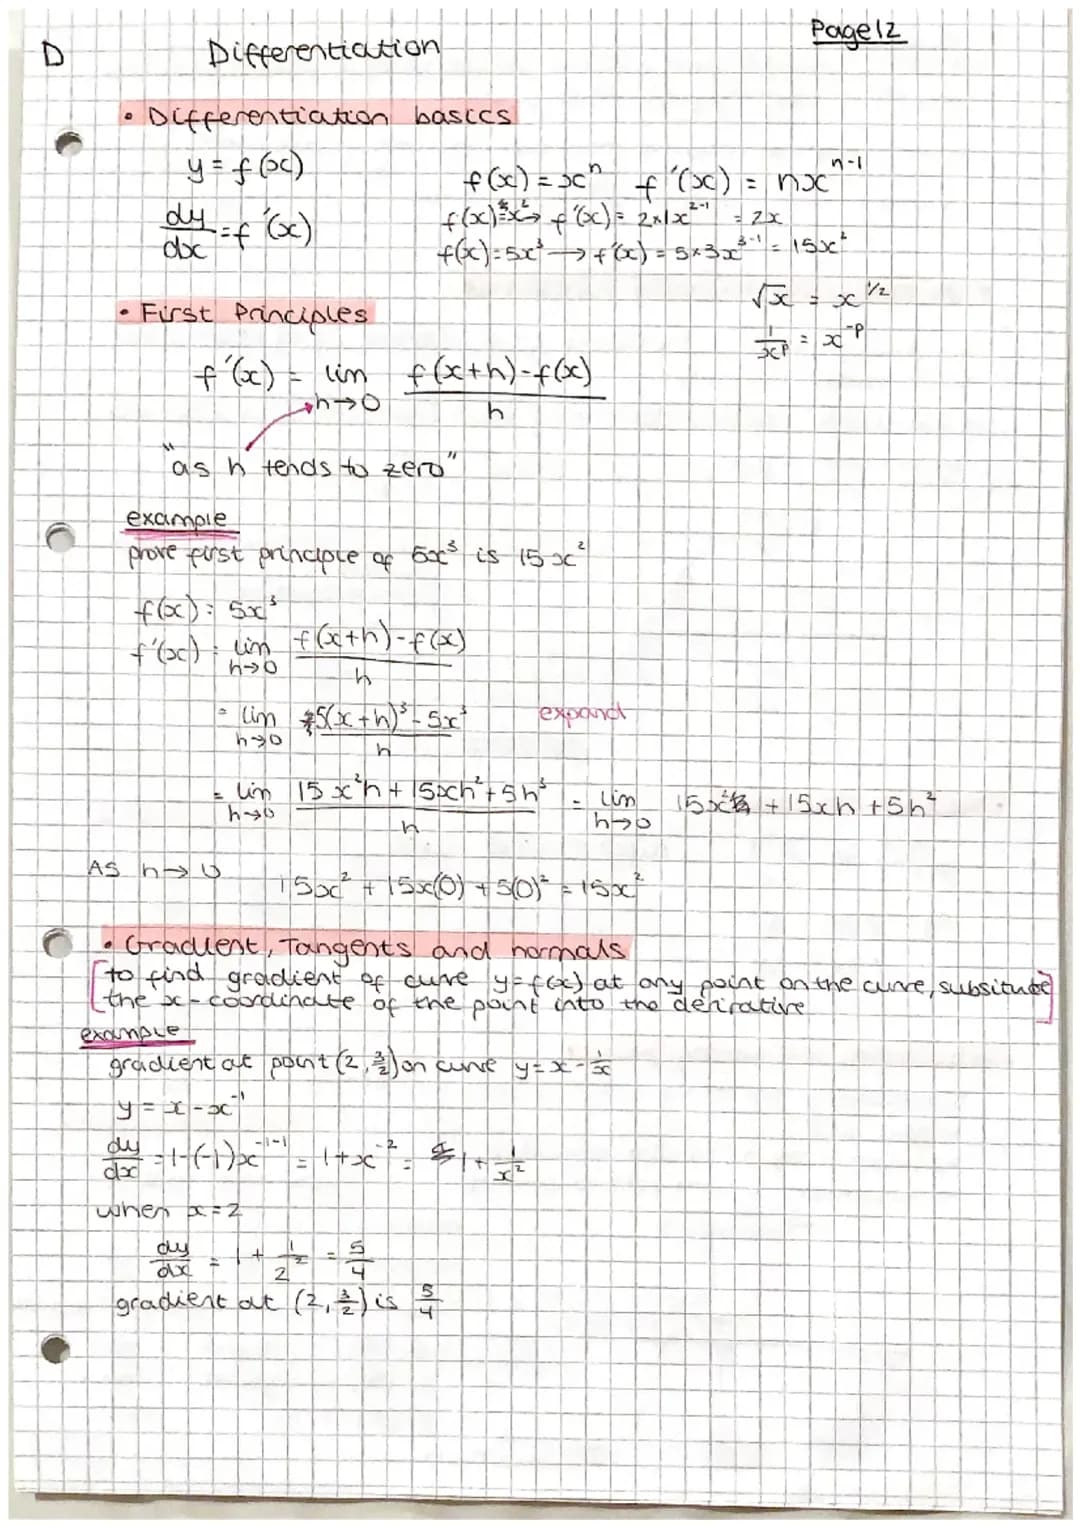 Page 12
D Differentiation
• Differentiation basics
y = f(x)
f(x) = xⁿ f'(x) = nxⁿ⁻¹
dy/dx = f'(x)
f(x) = x² → f'(x) = 2×1x²⁻¹ = 2x
f(x) = 5x³ → f'(x) = 5×3x³⁻¹ = 15x²
√x = x^1/2
1/xᵖ = x⁻ᵖ
• First Principles
f'(x) = lim h→0 f(x+h)-f(x)/h
"as h tends to zero"
example
prove first principle of 5x³ is 15x²
f(x) = 5x³
f'(x) = lim h→0 f(x+h)-f(x)/h
= lim h→0 5(x+h)³-5x³/h expand
= lim h→0 15x²h + 15xh² + 5h³/h = lim h→0 15x² + 15xh + 5h²
As h→0 15x² + 15x(0) + 5(0)² = 15x²
• Gradient, Tangents and normals
to find gradient of curve y=f(x) at any point on the curve, subsitute
the x-coordinate of the point into the derivative
example
gradient at point (2, 3/2) on curve y = x - 1/x
y = x - x⁻¹
dy/dx = 1-(-1)x⁻¹⁻¹ = 1+x⁻² = 1 + 1/x²
when x=2
dy/dx = 1 + 1/2² = 5/4
gradient at (2, 3/2) is 5/4